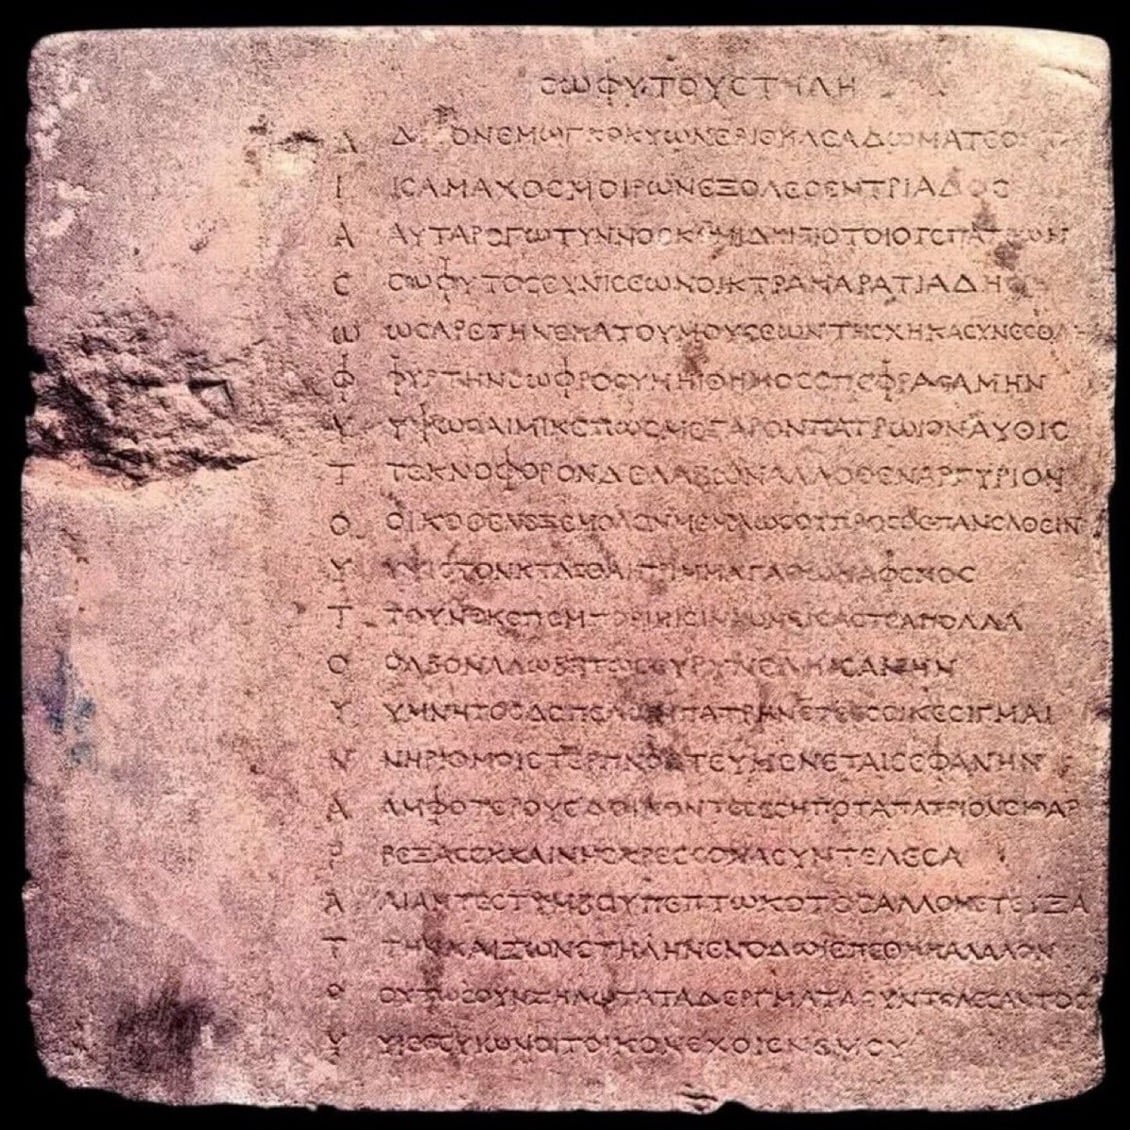 ΣΩΦΥΤΟΥΣΤΗΛΗ
Δ ΔΗΡΟΝΕΜΩΓΚΟΚΥΩΝΕΡΙΘΗΛΕΑΔΩΜΑΤΕΟ
Ι ΙΣΑΜΑΧΟΣΜΟΙΡΩΝΕΞΟΛΕΣΕΝΤΡΙΑΔΟΣ
Α ΑΥΤΑΡΕΓΩΤΥΝΝΟΣΚΟΜΙΔΗΙΒΙΟΤΟΙΟΤΕΠΑΤΡΩΝ
Σ ΣΩΦΥΤΟΣΕΥΝΙΣΕΩΝΟΙΚΤΡΑΝΑΡΑΤΙΑΔΗΣ
Ω ΩΣΑΡΕΤΗΝΕΚΑΤΟΥΜΟΥΣΕΩΝΤΗΣΧΗΚΑΣΥΝΕΣΘΛΗΙ
Φ ΦΥΡΤΗΝΣΩΦΡΟΣΥΝΗΙΘΗΜΟΣΕΠΕΦΡΑΣΑΜΗΝ
Υ ΥΨΩΣΑΙΜΙΚΕΠΩΣΜΕΓΑΡΟΝΠΑΤΡΩΙΟΝΑΥΘΙΣ
Τ ΤΕΚΝΟΦΟΡΟΝΔΕΛΑΒΩΝΑΛΛΟΘΕΝΑΡΓΥΡΙΟΝ
Ο ΟΙΚΟΘΕΝΕΞΕΜΟΛΟΝΜΕΜΑΩΣΟΥΠΡΟΣΘΕΠΑΝΕΛΘΕΙΝ
Υ ΥΨΙΣΤΟΝΚΤΑΣΘΑΙΠΡΙΜΜΑΓΑΘΩΝΑΦΕΝΟΣ
Τ ΤΟΥΝΕΚΕΠΕΜΠΟΡΙΗΙΣΙΝΙΩΝΕΙΣΑΣΤΕΑΠΟΛΛΑ
Ο ΟΛΒΟΝΑΛΩΒΗΤΩΣΕΥΡΥΝΕΛΗΙΣΑΜΗΝ
Υ ΥΜΝΗΤΟΣΔΕΠΕΛΩΝΠΑΤΡΗΝΕΤΕΕΣΣΙΝΕΣΙΓΜΑΙ
Ν ΝΗΡΙΘΜΟΙΣΤΕΡΠΝΟΣΤΕΥΜΕΝΕΤΑΙΣΕΦΑΝΗΝ
Α ΑΜΦΟΤΕΡΟΥΣΔΟΙΚΟΝΤΕΣΕΣΗΠΟΤΑΠΑΤΡΙΟΝΕΙΘΑΡ
Ρ ΡΕΞΑΣΕΚΚΑΙΝΗΣΚΡΕΣΣΟΝΑΣΥΝΤΕΛΕΣΑ
Α ΑΙΑΝΤΕΣΤΥΜΒΟΥΠΕΠΤΩΚΟΤΟΣΑΛΛΟΝΕΤΕΥΞΑ
Τ ΤΗΝΚΑΙΖΩΝΣΤΗΛΗΝΕΝΟΔΩΙΕΠΕΘΗΚΑΛΑΛΟΝ
Ο ΟΥΤΩΣΟΥΝΖΗΛΩΤΑΤΑΔΕΡΓΜΑΤΑΣΥΝΤΕΛΕΣΑΝΤΟΣ
Υ ΥΙΕΕΣΥΙΩΝΟΙΤΟΙΚΟΝΕΧΟΙΕΝΕΜΟΥ